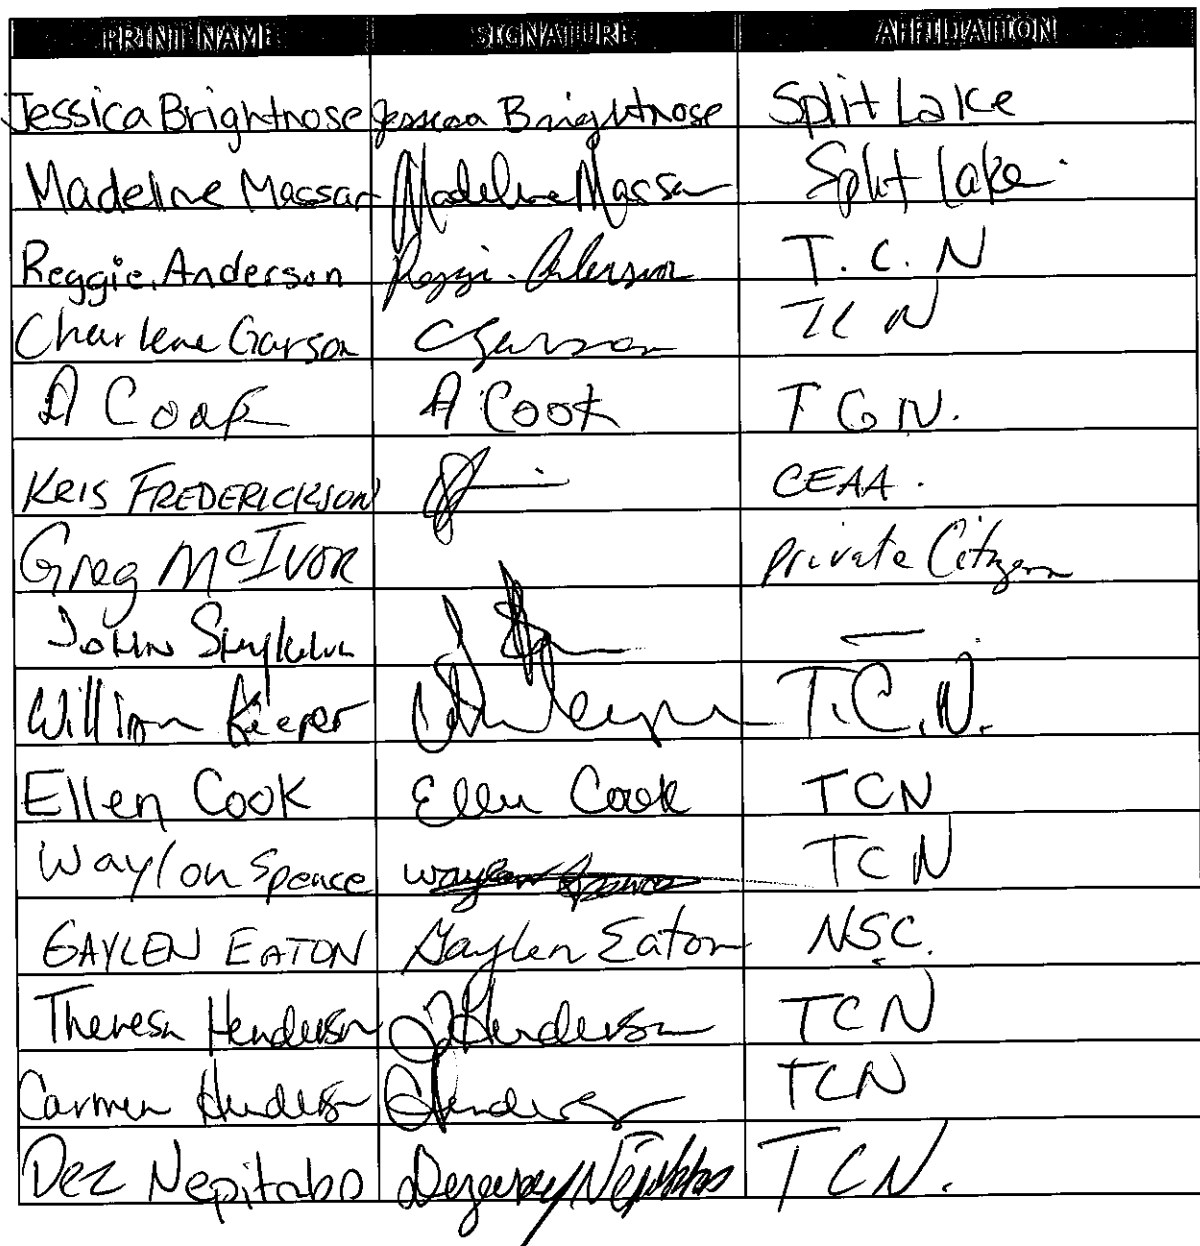 PRINT NAME SIGNATURE AFFILIATION
Jessica Brightnose Jessica Brightnose Split Lake
Madeline Massan Madeline Massan Split Lake.
Reggie. Anderson Reggie. Anderson T. C. N
Charlene Garson CGarson TCN
A Cook A Cook TCN.
KRIS FREDERICKSON CEAA.
Greg McIVOR private Citizen
JOHN —.
William Keeper T.C.N.
Ellen Cook Ellen Cook TCN
Waylon Spence Waylon Spence TCN
GAYLEN EATON Gaylen Eaton NSC.
Theresa Henderson THenderson TCN
Carmen Henderson CHenderson TCN
Dez Nepitabo TCN.